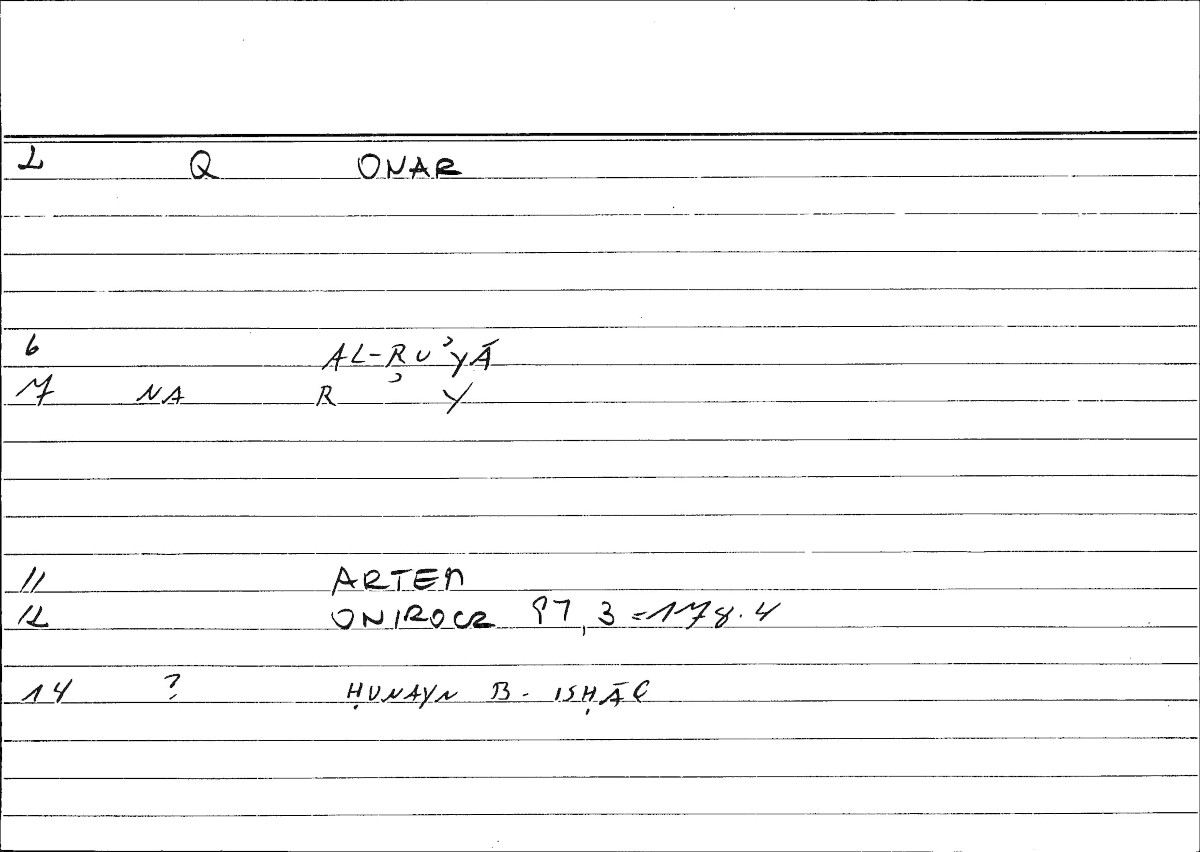 2 Q ONAR
6 AL-RUʾYĀ
7 NA R ʾ Y
11 ARTEM
12 ONIROCR 97,3 = 178.4
14 ? ḤUNAYN B. ISḤĀQ